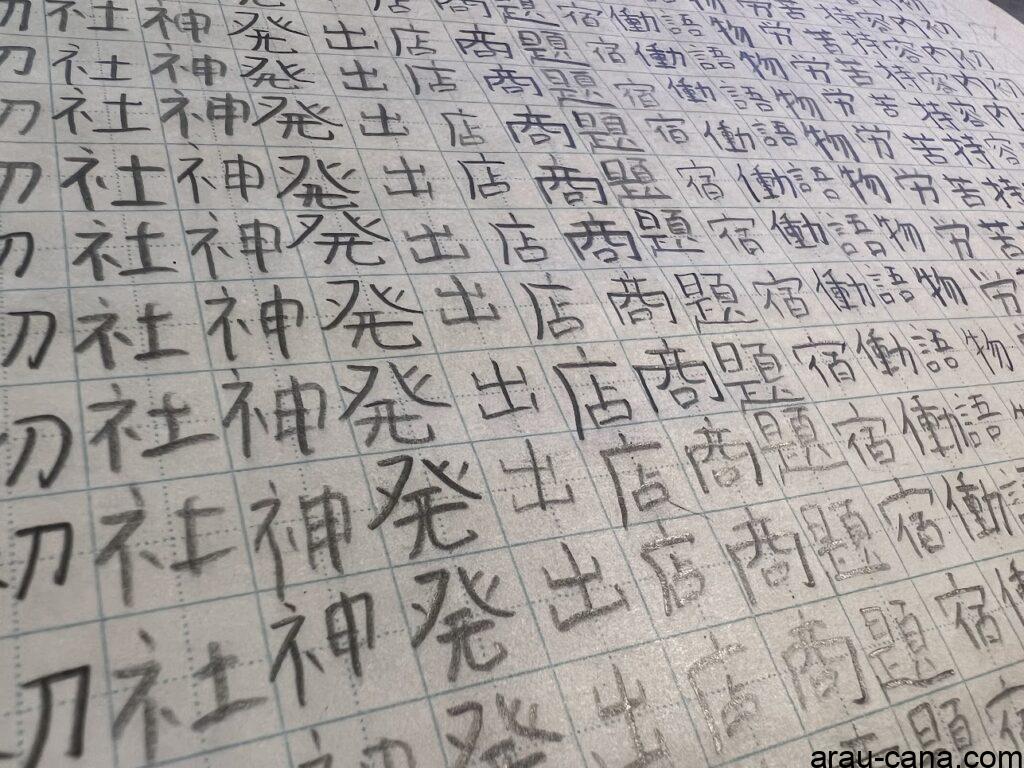 社神発出店商題宿働語物労苦持容内初
社神発出店商題宿働語物労苦持容内
社神発出店商題宿働語物労苦持容
社神発出店商題宿働語物労苦持
社神発出店商題宿働語物労苦
社神発出店商題宿働語物労
社神発出店商題宿働語物
社神発出店商題宿働語
社神発出店商題宿働
発出店商題宿
題
arau-cana.com